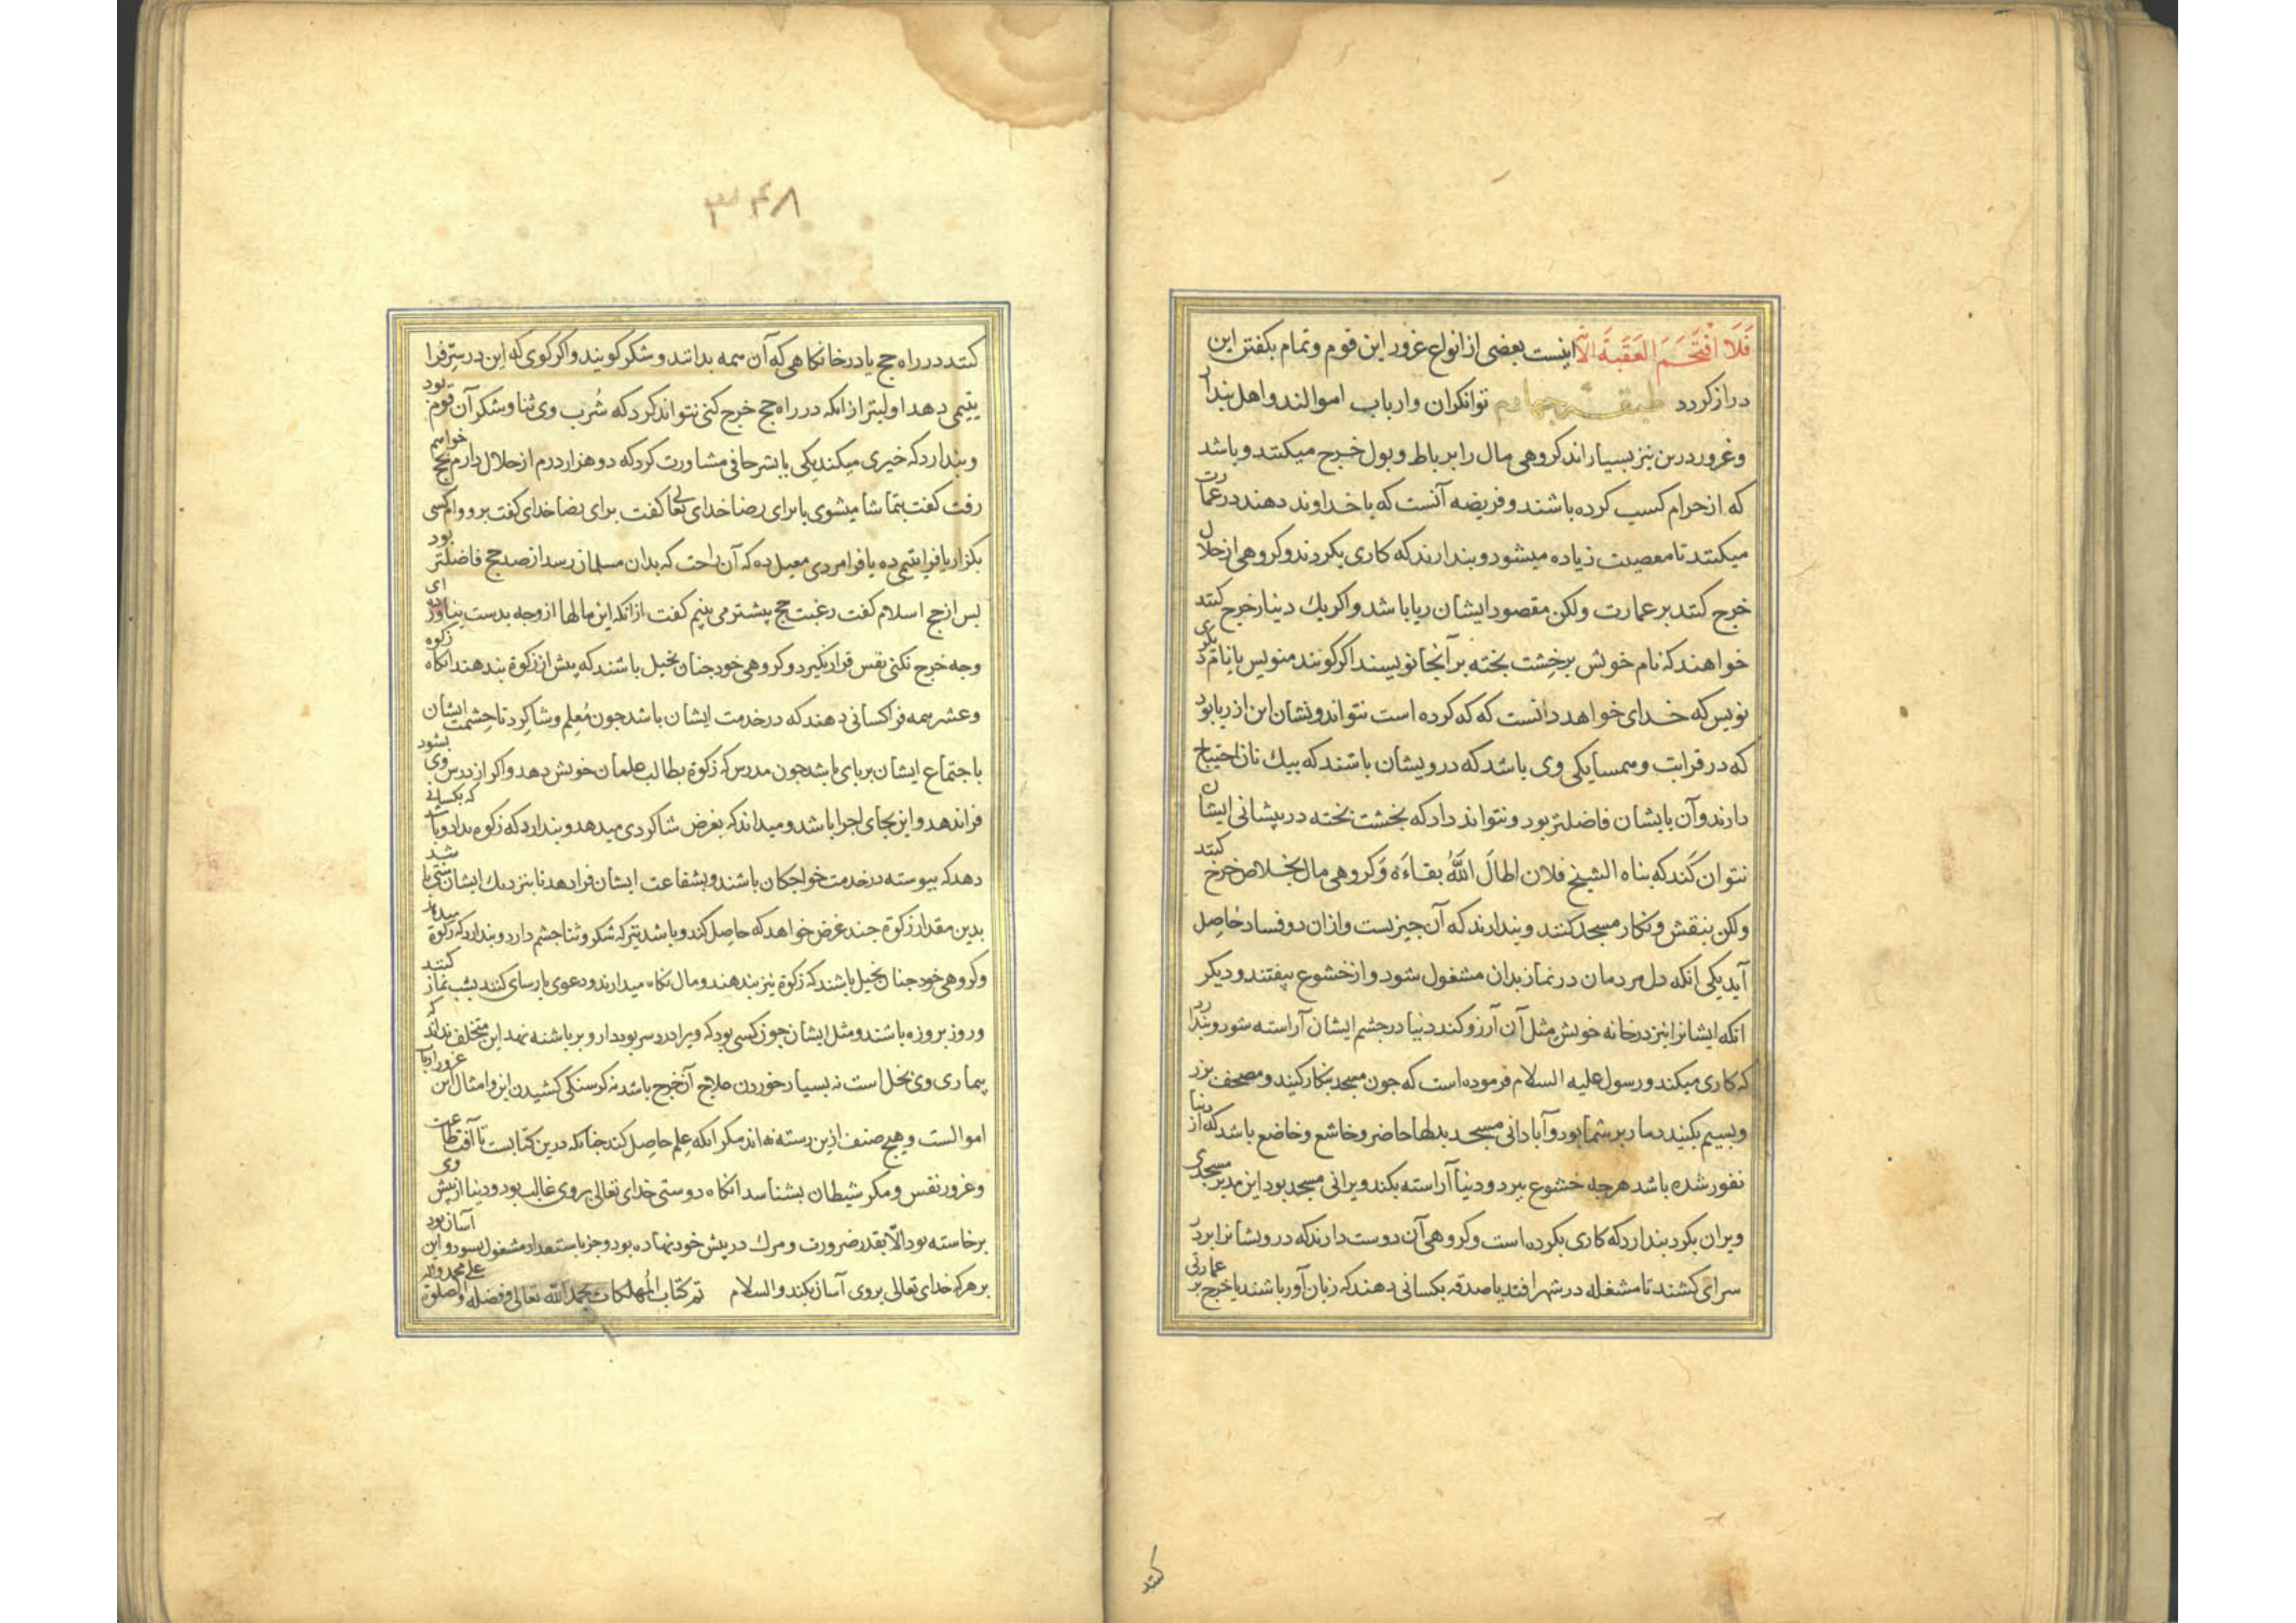 فَلَا اقْتَحَمَ العَقَبَةَ الآیة اینست بعضی از انواع غرور این قوم وتمام بکفتن این
دراز کردد طبقه چهارم توانکران وارباب اموالند واهل بندار
وغرور درین نیز بسیاراند کروهی مال را بر رباط وبول خرج میکنند وباشد
که از حرام کسب کرده باشند وفریضه آنست که با خداوند دهند در عمارت
میکنند تا معصیت زیاده میشود وبندارند که کاری بکردند وکروهی از حلال
خرج کنند بر عمارت ولکن مقصود ایشان ریا باشد واکر یك دینار خرج کنند
خواهند که نام خویش بر خشت بخته بر آنجا نویسند اکر کویند منویس یا نام دیکری
نویس که خدای خواهد دانست که که کرده است نتواند ونشان این از ریا بود
که در قرابت وهمسایکی وی باشد که درویشان باشند که بیك نان احتیاج
دارند وآن بایشان فاضلتر بود ونتواند داد که بخشت بخته در پیشانی ایشان
نتوان کند که بناه الشیخ فلان اطالَ اللهُ بقاءَه وکروهی مال بخلاص خرج کنند
ولکن بنقش ونکار مسجد کنند وبندارند که آن چیزیست وازان دو فساد حاصل
آید یکی انکه دل مردمان در نماز بدان مشغول شود واز خشوع بیفتند ودیکر
انکه ایشانرا نیز در خانه خویش مثل آن آرزو کند ودنیا در چشم ایشان آراسته شود وبندارد
که کاری میکند ورسول علیه السلام فرموده است که جون مسجد بنکار کنید ومصحف بزر
وبسیم بکنید دمار بر شما بود وآبادانی مسجد بدلها حاضر وخاشع وخاضع باشد که از دنیا
نفور شده باشد هرچه خشوع ببرد ودنیا آراسته بکند ویرانی مسجد بود این مدبر مسجدی
ویران بکرد بندارد که کاری بکرده است وکروهی آن دوست دارند که درویشانرا بر در
سرای کشند تا مشغله در شهر افتد یا صدقه بکسانی دهند که زبان آور باشند یا خرج بر عمارتی
کنند
۳۴۸
کنند در راه حج یا در خانکاهی که آن همه بدانند وشکر کویند واکر کوی که این در سِرّ فرا
یتیمی دهد اولیتر ازانکه در راه حج خرج کنی نتواند کرد که شُرب وی ثنا وشکر آن قوم بود
وبندارد که خیری میکند یکی با بشر حافی مشاورت کرد که دو هزار درم از حلال دارم بحج خواهم
رفت کفت بتماشا میشوی یا برای رضا خدای تعالی کفت برای رضا خدای کفت برو وام کسی
بکزار یا فرا یتیمی ده یا فرا مردی معیل ده که آن راحت که بدان مسلمان رسد از صد حج فاضلتر بود
بس از حج اسلام کفت رغبت حج پیشتر می بینم کفت ازانکه این مالها از وجه بدست نیاورده ای
وجه خرج نکنی نفس قرار نکیرد وکروهی خود جنان بخیل باشند که بیش از زکوة بندهند انکاه زکوه
وعشر همه فرا کسانی دهند که در خدمت ایشان باشد جون مُعلم وشاکرد تا حِشمت ایشان
باجتماع ایشان بر بای باشد جون مدرس که زکوة بطالب علمان خویش دهد واکر از درس وی بشود
فراندهد واین بجای اجرا باشد ومیداند که بعرض شاکردی میدهد وبندارد که زکوه بداد وباشد که بکسانی
دهد که بیوسته در خدمت خواجکان باشند وبشفاعت ایشان فرا دهد تا بنزدیك ایشان منتی باشد
بدین مقدار زکوة جند غرض خواهد که حاصل کند وباشد نیز که شکر وثنا جشم دارد وبندارد که زکوة میدهد
وکروهی خود جنان بخیل باشند که زکوة نیز بندهند ومال نکاه میدارند ودعوی پارسای کنند بشب نماز کنند
وروز بروزه باشند ومثل ایشان جون کسی بود که ویرا درد سر بود دارو بر باشنه نهد این متخلف نداند که
بیماری وی بخل است نه بسیار خوردن علاج آن خرج باشد نه کرسنکی کشیدن این وامثال این غرور ارباب
اموالست وهیج صنف ازین رسته نه اند مکر انکه علم حاصل کند جنانکه درین کتابست تا آفت طاعت
وغرور نفس ومکر شیطان بشناسد انکاه دوستی خدای تعالی بروی غالب بود ودنیا از پیش وی
برخاسته بود الّا بقدر ضرورت ومرك در پیش خود نهاده بود وجز باستعداد مشغول نشود واین آسان بود
بر هرکه خدای تعالی بروی آسان بکند والسلام تم کتاب المُهلکات بحمد الله تعالی وفضله والصلوة علی محمد وآله